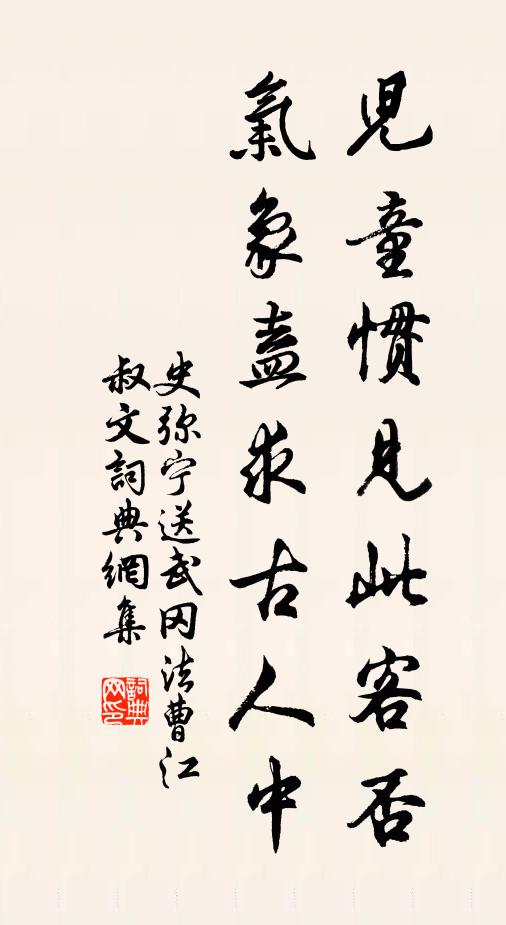 兒童慣見此客否
氣象盍求古人中
史弥宁送武冈法曹江
叔文詞典網集
詞典
网印